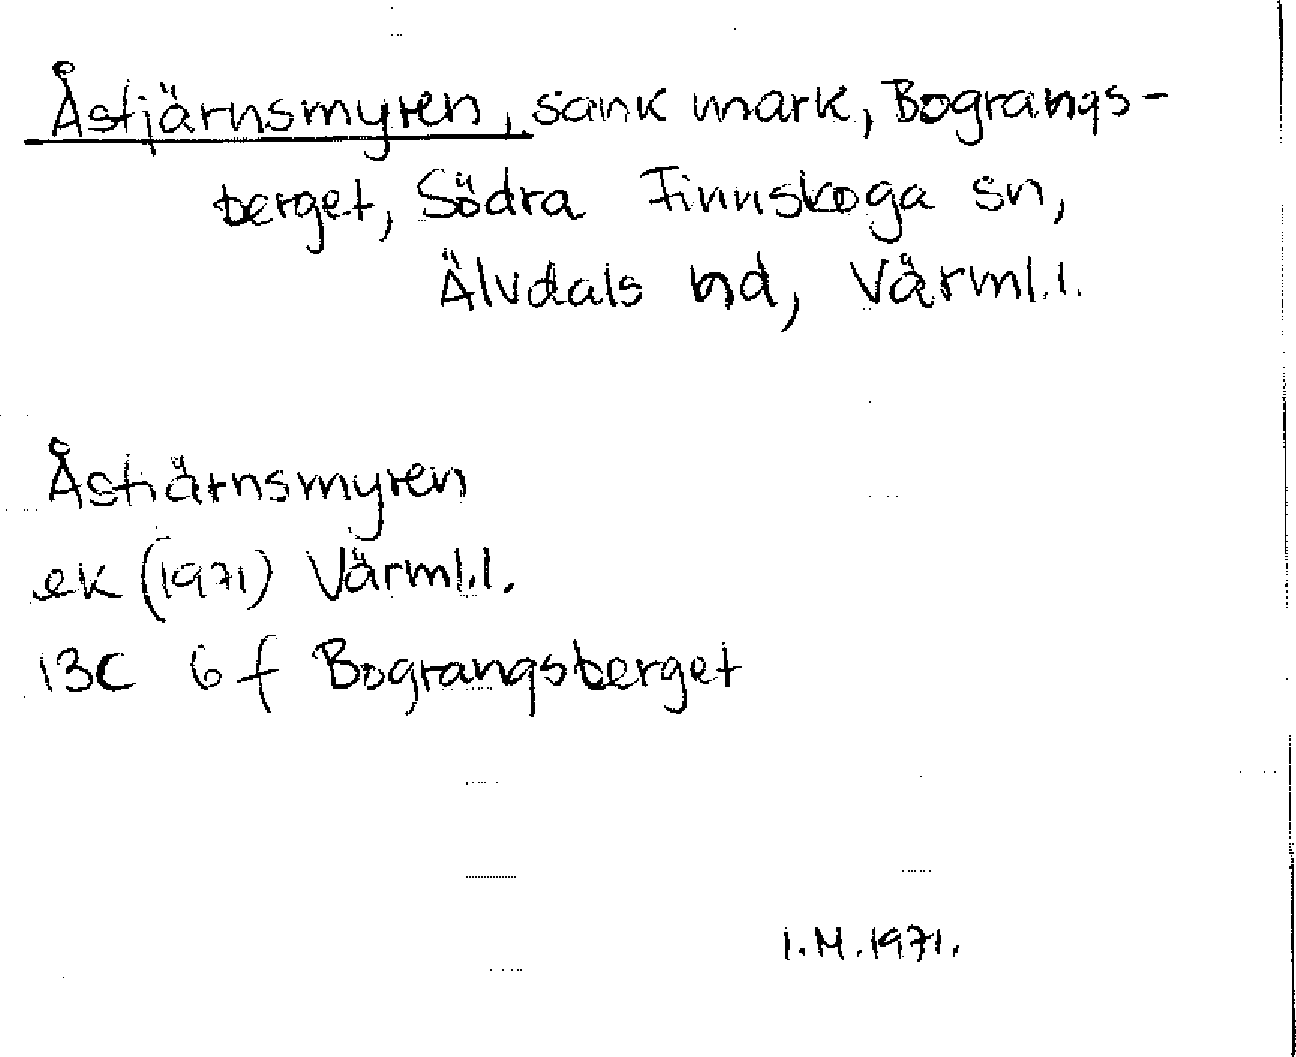 Åstjärnsmyren, sank mark, Bograngs-
berget, Södra Finnskoga sn,
Älvdals hd, Värml.l.
Åstjärnsmyren
ek (1971) Värml.l.
13C 6f Bograngsberget
I.M.1971.